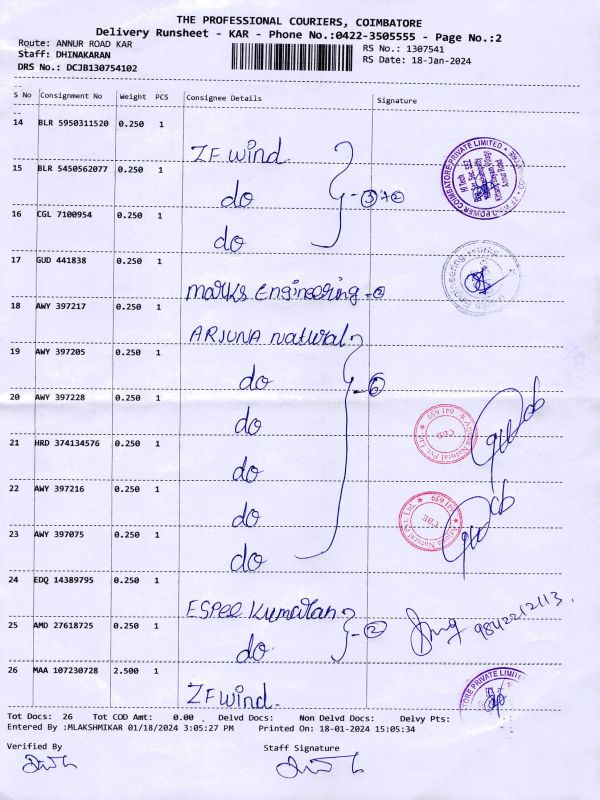 THE PROFESSIONAL COURIERS, COIMBATORE
Delivery Runsheet - KAR - Phone No.:0422-3505555 - Page No.:2
Route: ANNUR ROAD KAR RS No.: 1307541
Staff: DHINAKARAN RS Date: 18-Jan-2024
DRS No.: DCJB130754102
S No Consignment No Weight PCS Consignee Details Signature
14 BLR 5950311520 0.250 1 ZF wind
15 BLR 5450562077 0.250 1 do - 3+2
16 CGL 7100954 0.250 1 do
17 GUD 441838 0.250 1 marks Engineering - 2
18 AWY 397217 0.250 1 ARJUNA natural
19 AWY 397205 0.250 1 do - 6
20 AWY 397228 0.250 1 do
21 HRD 374134576 0.250 1 do
22 AWY 397216 0.250 1 do
23 AWY 397075 0.250 1 do
24 EDQ 14389795 0.250 1 ESPEE Kumaran
25 AMD 27618725 0.250 1 do - 2 9842212113
26 MAA 107230728 2.500 1 ZF wind
Tot Docs: 26 Tot COD Amt: 0.00 Delvd Docs: Non Delvd Docs: Delvy Pts:
Entered By :MLAKSHMIKAR 01/18/2024 3:05:27 PM Printed On: 18-01-2024 15:05:34
Verified By Staff Signature